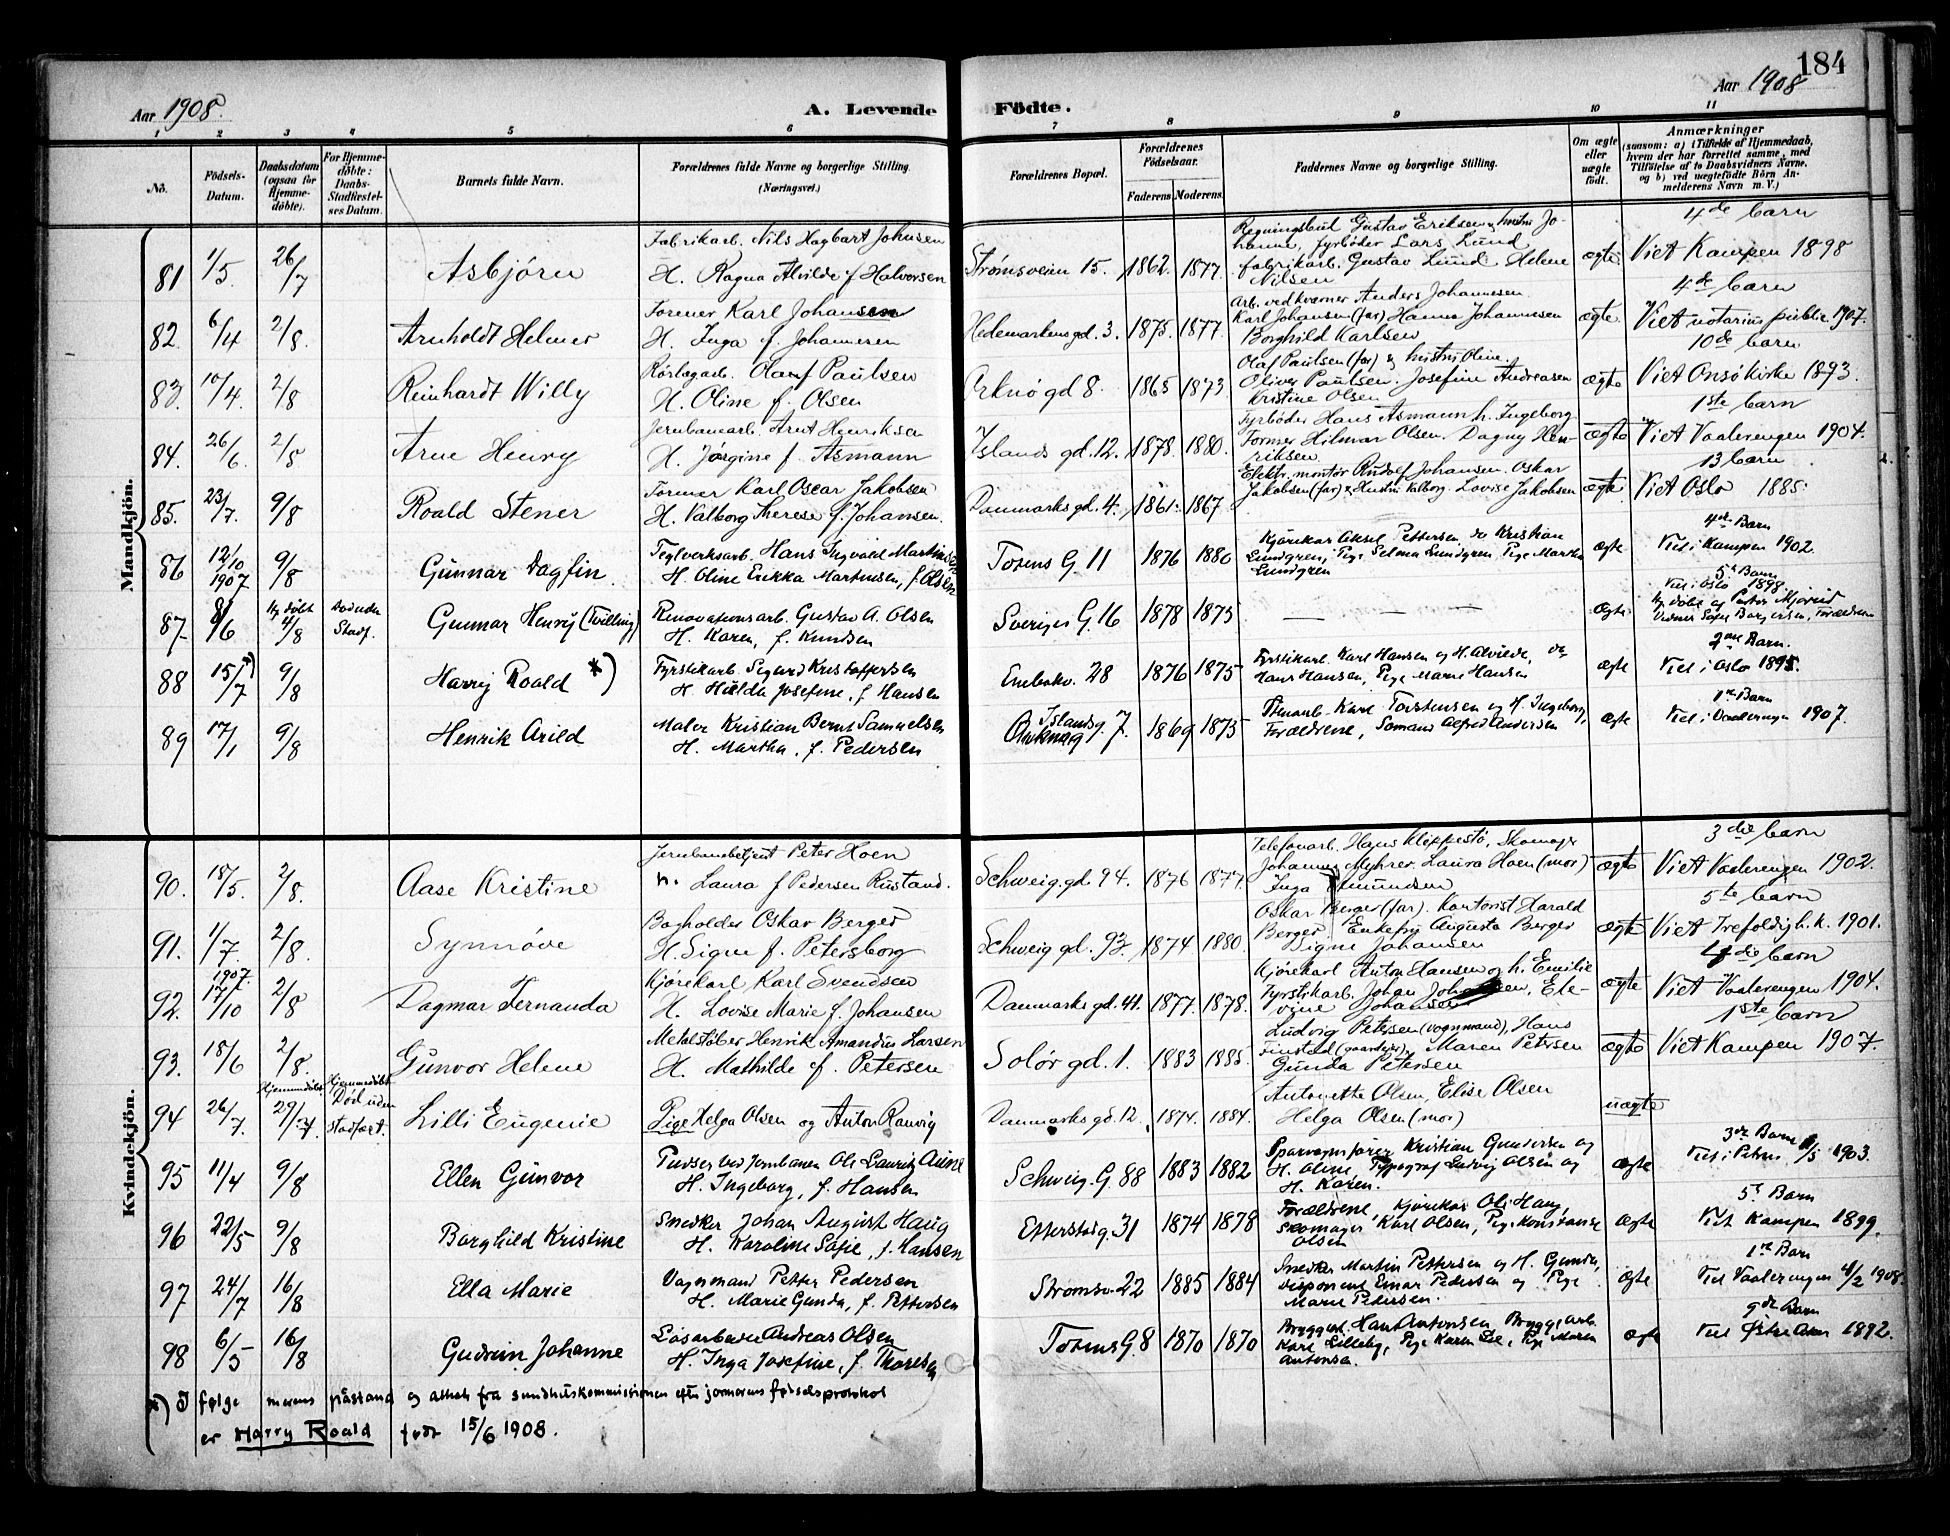 184
Aar 1908.
A. Levende Födte.
Aar 1908
1 2 3 4 5 6 7 8 9 10 11
No.
Födsels-Datum.
Daabsdatum (ogsaa for Hjemme-döbte).
For Hjemme-döbte: Daabs-Stadfæstel-ses Datum.
Barnets fulde Navn.
Forældrenes fulde Navne og borgerlige Stilling. (Næringsvei.)
Forældrenes Bopæl.
Forældrenes Födselsaar.
Faderens Moderens
Faddernes Navne og borgerlige Stilling.
Om ægte eller uægte födt.
Anmærkninger
(saasom: a) i Tilfælde af Hjemmedaab, hvem der har forrettet samme, med Tilföielse af to Daabsvidners Navne, og b) ved uægtefödte Börn An-melderens Navn m. V.)
Mandkjön.
4de barn
Fabrikarb. Nils Hagbart Johnsen
81 1/5 26/7 Asbjörn H. Ragna Alvilde f Halvorsen Strømsveien 15. 1862. 1877. Gustav Eriksen & hustru Johanne, fyrbøder Lars Lund fabrikarb. Gustav Lund Helene Nilsen ægte Viet Kampen 1898
4de barn
Former Karl Johansen
82. 6/4 2/8. Arnholdt Helmer H. Inga f. Johannesen Hedemarkens gd. 3. 1875. 1877. Arb. ved kværner Anders Johannesen Karl Johansen (far) Hanna Johannesen Borghild Karlsen ægte. Viet notarius public. 1907.
10de barn
Rörlagarb. Olauf Paulsen
83. 10/4. 2/8 Reinhardt Willy H. Oline f. Olsen Orknö gd 8. 1865 1873 Olaf Paulsen (far) & hustru Oline. Oliver Paulsen. Josefine Andreasen Kristine Olsen ægte Viet Onsö kirke 1893.
1ste barn
Jernbanearb. Arnt Henriksen
84. 26/6. 2/8 Arne Henry H. Jørgine f. Asmann Islands gd. 12. 1878. 1880. Fyrbøder Hans Asmann h. Ingeborg Former Hilmar Olsen. Dagny Henriksen. ægte Viet Vaalerengen 1904.
13 barn
Former Karl Oscar Jakobsen
85. 23/7. 9/8 Roald Stener H. Valborg Therese f. Johansen. Danmarks gd. 4. 1861. 1867 Elektr. montör Rudolf Johansen. Oskar Jakobsen (far) & Hustru Valborg. Lovise Jakobsen ægte Viet Oslo 1885.
4de Barn
86 12/10 1907 9/8 Gunnar Dagfin. Teglverksarb. Hans Ingvald Martinsen H. Oline Erikka Martinsen, f. Olsen Totens G. 11 1876 1880 Kjörekar Aksel Pettersen, do Kristian Lundgren, Pige Selma Lundgren Pige Martha Lundgren ægte Viet i Kampen 1902.
5te Barn
87. 8/6 Hj döbt 4/8 Död uden Stadf. Gunnar Henrij (Tvilling) Renovationsarb. Gustav A. Olsen H. Karen, f. Knudsen Sveriges G. 16 1878 1875 — — — ægte Viet i Oslo 1898 Hj. döbt af Pastor Vidner Sofie Borgersen, Forældrene
2det Barn.
88 15/7 *) 9/8 Harry Roald *) Fyrstikarb. Sigurd Kristoffersen H. Hulda Josefine, f. Hansen Enebakv. 28 1876 1875 Fyrstikarb. Karl Hansen og H. Alvilde, do Hans Hansen, Pige Marie Hansen ægte Viet i Oslo 1895.
1ste Barn
89 17/1 9/8 Henrik Arild Maler Kristian Bernt Samuelsen H. Martha, f. Pedersen Islandsg. 7. 1869 1875 Karl Torstensen og H. Ingeborg, Forældrene, Sömand Alfred Andersen ægte Viet i Vaalerengen 1907.
Kvindekjön.
3die barn
Jernbanebetjent Peter Hoen
90. 18/5. 2/8. Aase Kristine H. Laura f Pedersen Rustand. Schweig. gd. 94. 1876 1877. Telefonarb. Hans Kleppestö, Skomager Johannes Myhrer. Laura Hoen (mor) Inga Amundsen ægte Viet Vaalerengen 1902.
5te barn
Bogholder Oskar Berger
91. 1/7. 2/8. Synnöve H. Signe f. Petersborg Schweig gd. 93. 1874 1880. Oskar Berger (far). Kontorist Harald Berger. Enkefru Augusta Berger Signe Johansen ægte Viet Trefoldigh. k. 1901.
4de barn
Kjörekarl Karl Svendsen
92. 1907. 17/10 2/8 Dagmar Fernanda H. Lovise Marie f. Johansen Danmarks gd. 41. 1877. 1878. Kjörekarl Anton Hansen og h. Emilie Fyrstikarb. Johan Johansen, Elevine Johansen ægte Viet Vaalerengen 1904.
1ste barn
Metalstøber Henrik Amandus Larsen
93. 18/6 2/8. Gunvor Helene H. Mathilde f. Petersen Solör gd. 1. 1883 1885. Ludvig Petersen (vognmand), Hans Finstad (gaardeier), Maren Petersen Gunda Petersen ægte Viet Kampen 1907.
94 26/7. Hjemmedöbt 29/7. Hjemmedöbt Død uden stadfæst. Lilli Eugenie Pige Helga Olsen og Anton Ranvig Danmarks gd. 12. 1874. 1884. Antonette Olsen, Elise Olsen Helga Olsen (mor) uægte
3de Barn
95 11/4 9/8 Ellen Gunvor Pudser ved Jernbanen Ole Lauritz Aune H. Ingeborg, f. Hansen Schweig. G. 88 1883 1882 Sporvognsfører Kristian Gundersen og H. Oline, Typograf Ludvig Olsen og H. Karen. ægte Viet i Petrus 1903.
5te Barn
96 22/5 9/8 Borghild Kristine Snedker Johan August Haug H. Karoline Sofie, f. Hansen Etterstadg. 31 1874 1878 Forældrene, Kjörekar Ole Haug, Skomager Karl Olsen, Pige Konstanse Olsen ægte Viet Kampen 1899.
1ste Barn
97 24/7 16/8 Ella Marie Vognmand Petter Pedersen H. Marie Gunda, f. Pettersen Strømsv. 22 1885 1884 Snedker Martin Pettersen og H. Gunda, Disponent Einar Pedersen og Pige Marie Pedersen. ægte Viet Vaalerengen 4/2 1908.
9de Barn
98 6/5 16/8 Gudrun Johanne Løsarbeider Andreas Olsen H. Inga Josefine, f. Thoresen Totens G. 8 1870 1870 Bryggearb. Hans Antonsen, Bryggearb. Karl Lilleby, Pige Karen Lie, Pige Maren Antonsen. ægte Viet Østre Aker 1892.
*) I følge morens påstand og attest fra sundhetskommissionen efter jormorens fødselsprotokol
er Harry Roald født 15/6 1908.